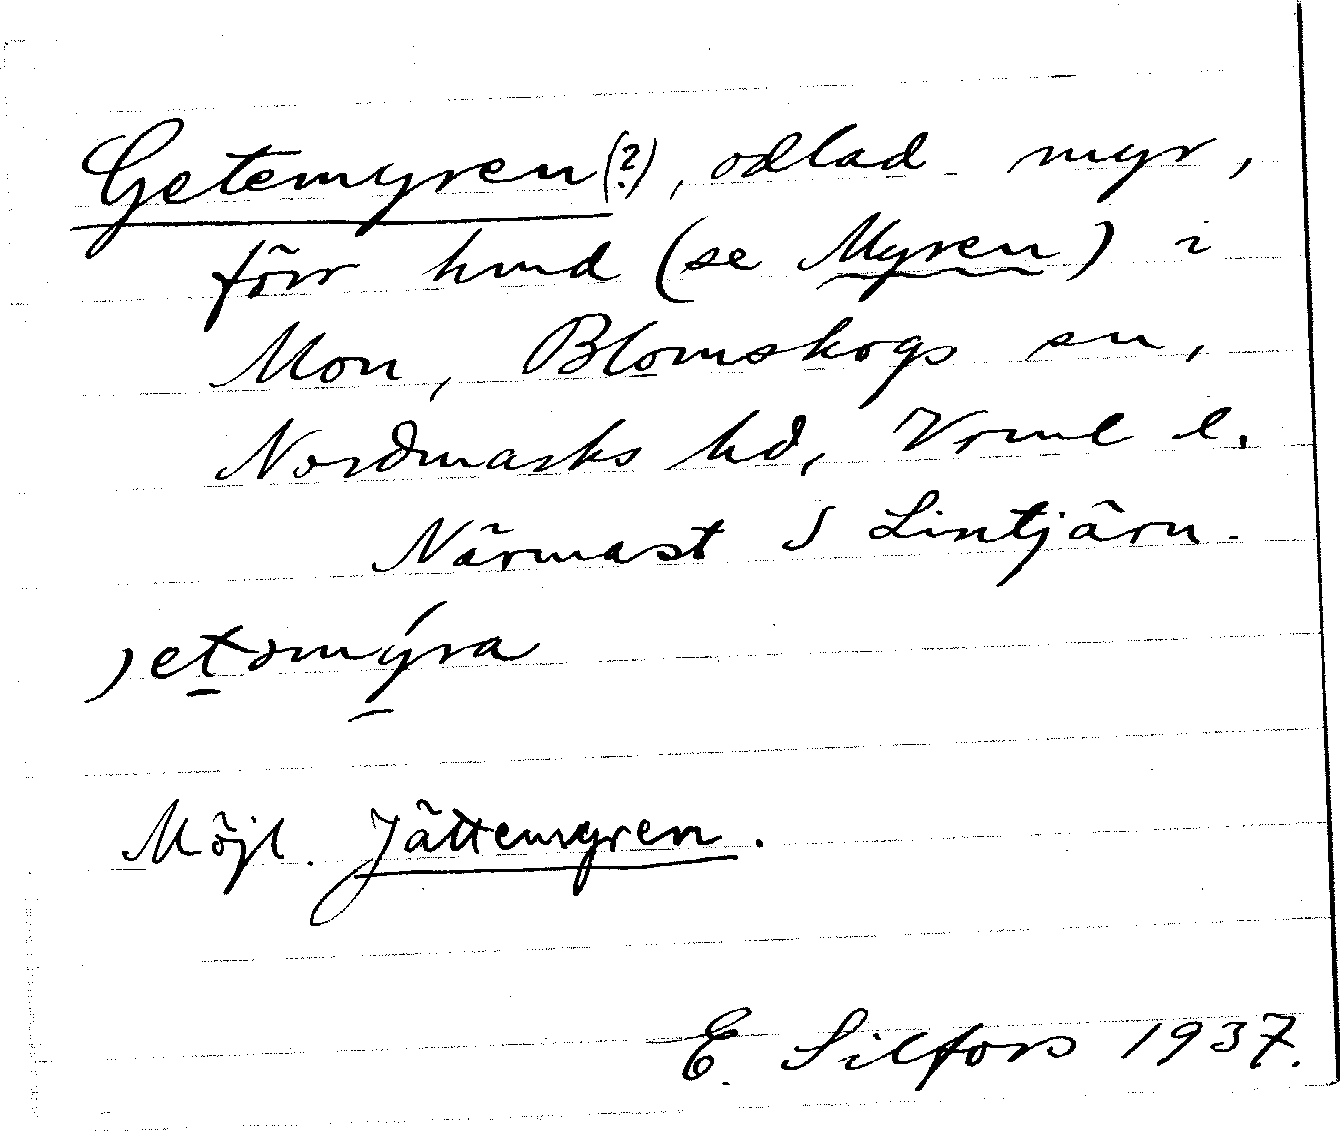 Getemyren(?), odlad myr,
förr hmd (se Myren) i
Mon, Blomskogs sn,
Nordmarks hd, Vrml l.
Närmast S Lintjärn.
jetomýra
Möjl. Jättemyren.
E. Silfors 1937.